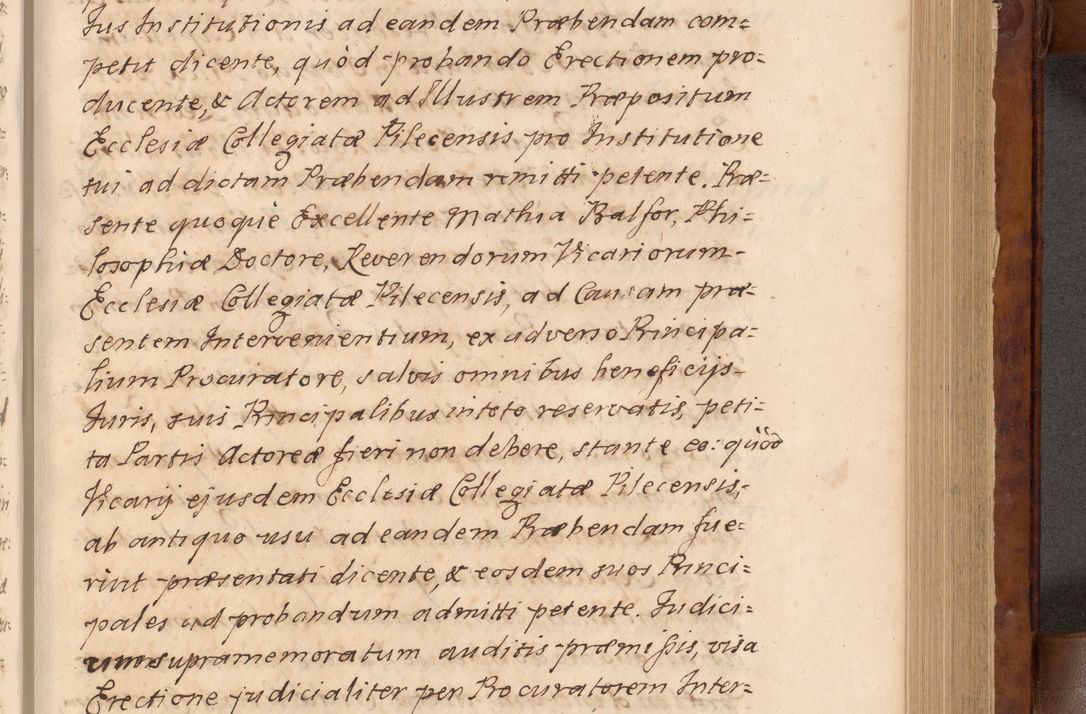 Jus Institutionis ad eandem Præbendam com=
petit dicente, quòd probando Erectionem pro=
ducente, & Actorem ad Illustrem Præpositum
Ecclesiæ Collegiatæ Pilecensis pro Institutione
sui ad dictam Præbendam remitti petente. Præ=
sente quoque Excellente Mathia Balsor, Phi=
losophiæ Doctore, Reverendorum Vicariorum
Ecclesiæ Collegiatæ Pilecensis, ad Causam præ=
sentem Intervenientium, ex adverso Principa=
lium Procuratore, salvis omnibus beneficijs
Juris, suis Principalibus in toto reservatis, peti=
ta Partis Actoreæ fieri non debere, stante eo: quòd
Vicarij ejusdem Ecclesiæ Collegiatæ Pilecensis,
ab antiquo usu ad eandem Præbendam fue=
rint præsentati dicente, & eosdem suos Princi=
pales ad probandum admitti petente. Judici=
um supramemoratum auditis præmissis, visa
Erectione judicialiter per Procuratorem Inter=